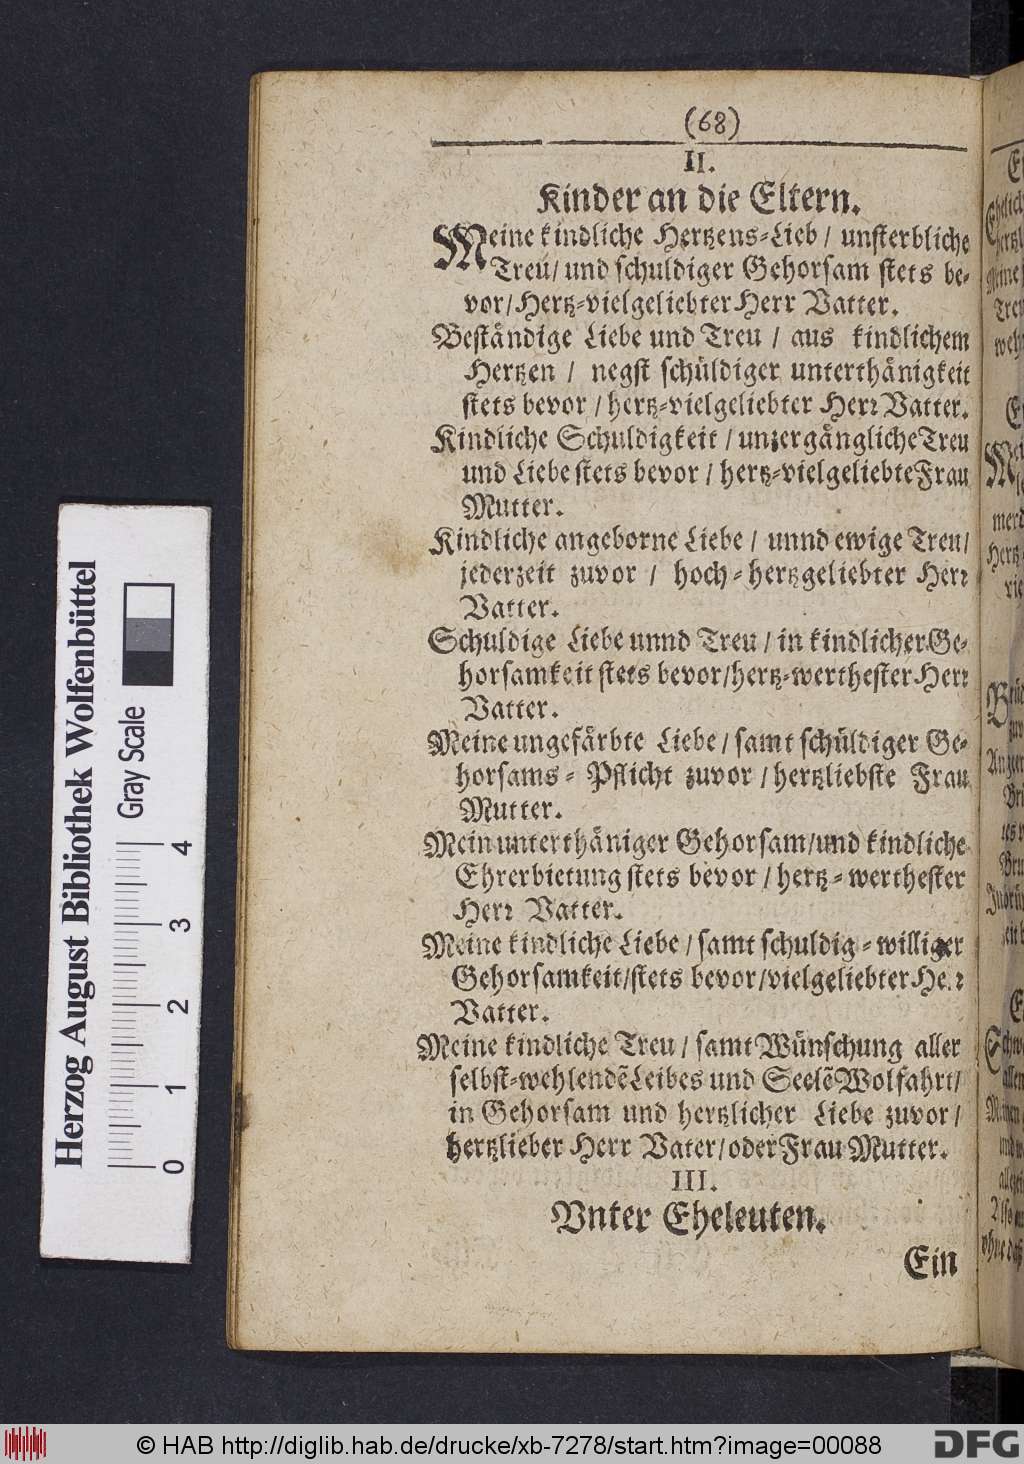 (68)
II.
Kinder an die Eltern.
Meine kindliche Hertzens=Lieb / unsterbliche
Treu/ und schuldiger Gehorsam stets be=
vor/ Hertz=vielgeliebter Herr Vatter.
Beståndige Liebe und Treu / aus kindlichem
Hertzen / negst schůldiger unterthånigkeit
stets bevor / hertz=vielgeliebter Herr Vatter.
Kindliche Schuldigkeit / unzergångliche Treu
und Liebe stets bevor / hertz=vielgeliebte Frau
Mutter.
Kindliche angeborne Liebe / unnd ewige Treu/
jederzeit zuvor / hoch=hertzgeliebter Herr
Vatter.
Schuldige Liebe unnd Treu / in kindlicher Ge=
horsamkeit stets bevor/hertz=werthester Herr
Vatter.
Meine ungefårbte Liebe / samt schůldiger Ge=
horsams=Pflicht zuvor / hertzliebste Frau
Mutter.
Mein unterthåniger Gehorsam/und kindliche
Ehrerbietung stets bevor / hertz=werthester
Herr Vatter.
Meine kindliche Liebe / samt schuldig=williger
Gehorsamkeit/stets bevor/vielgeliebter Herr
Vatter.
Meine kindliche Treu / samt Wůnschung aller
selbst=wehlendẽ Leibes und Seelẽ Wolfahrt/
in Gehorsam und hertzlicher Liebe zuvor /
hertzlieber Herr Vater/oder Frau Mutter.
III.
Vnter Eheleuten.
Ein
Herzog August Bibliothek Wolfenbüttel
Gray Scale
0 1 2 3 4
© HAB http://diglib.hab.de/drucke/xb-7278/start.htm?image=00088
DFG